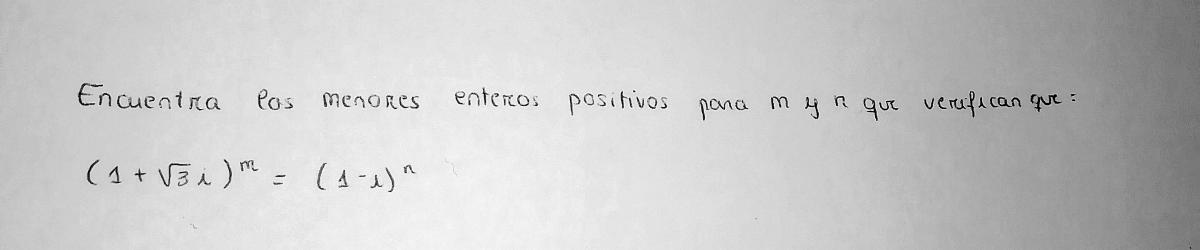 Encuentra los menores enteros positivos para m y n que verifican que:
(1 + √3 i)^m = (1-i)^n